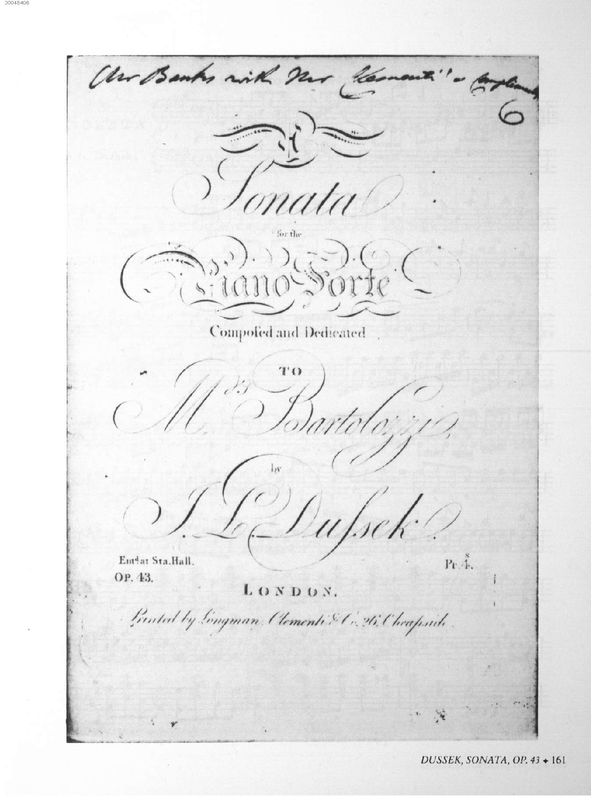 20048406
Mr Banks with Mr Clementi's Compliments
6
A
Sonata
for the
Piano Forte
Compoſed and Dedicated
TO
Mrs. Bartolozzi,
by
J. L. Duſsek.
Entd. at Sta. Hall. Pr. 4s.
OP. 43.
LONDON.
Printed by Longman, Clementi & Co. 26, Cheapside
DUSSEK, SONATA, OP. 43 ♦ 161